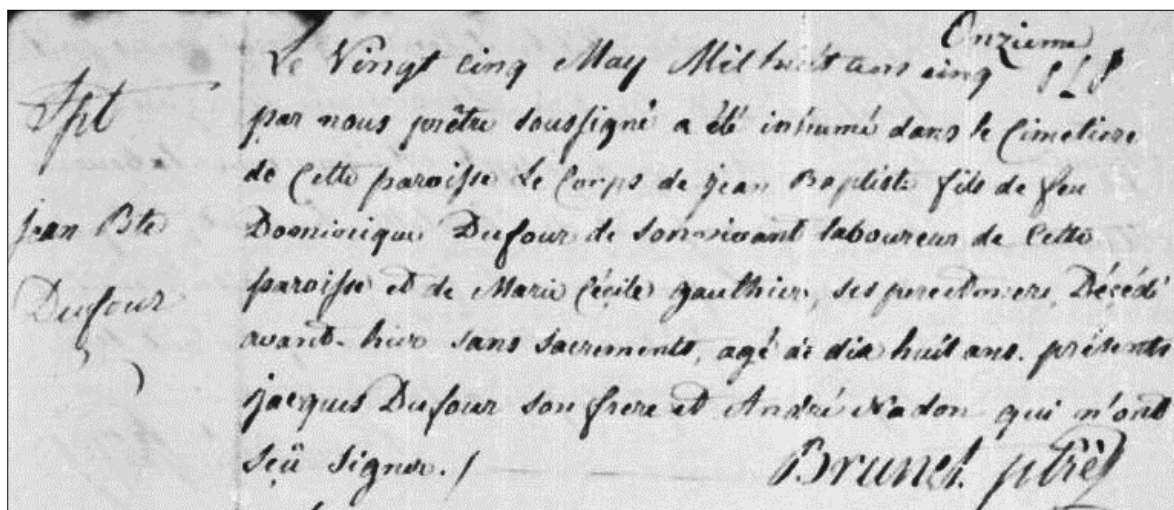 Onzieme
Le Vingt cinq May Mil huit cens cinq
Spt
par nous prêtre soussigné a été inhumé dans le Cimetiere
de Cette paroisse Le Corps de jean Baptiste fils de feu
jean Bte
Dominique Dufour de son vivant laboureur de Cette
Dufour
paroisse et de Marie Cécile gauthier, ses pere et mere, Décédé
avant-hier sans sacrements, agé de dix huit ans. présents
jacques Dufour son frere et André Nadon qui n'ont
sçû signer. /
Brunet ptrê